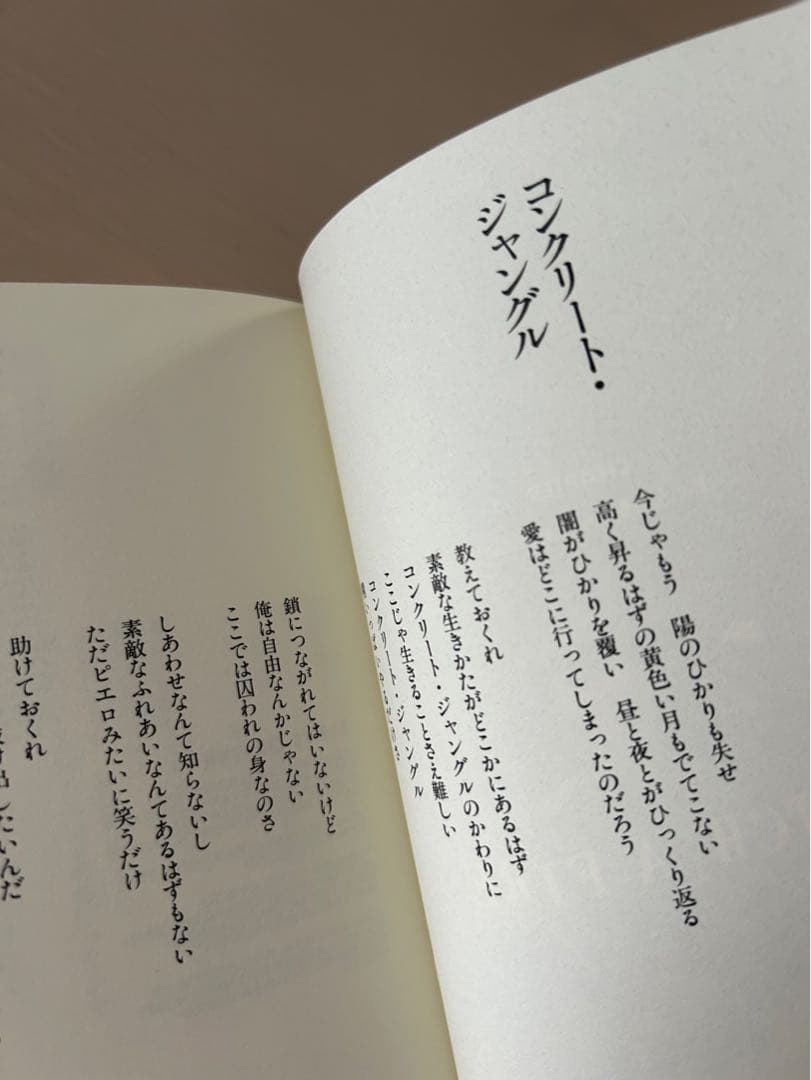 コンクリート・
ジャングル
今じゃもう　陽のひかりも失せ
高く昇るはずの黄色い月もでてこない
闇がひかりを覆い　昼と夜とがひっくり返る
愛はどこに行ってしまったのだろう
教えておくれ
素敵な生きかたがどこかにあるはず
コンクリート・ジャングルのかわりに
ここじゃ生きることさえ難しい
コンクリート・ジャングル
鎖につながれてはいないけど
俺は自由なんかじゃない
ここでは囚われの身なのさ
しあわせなんて知らないし
素敵なふれあいなんてあるはずもない
ただピエロみたいに笑うだけ
助けておくれ
出したいんだ